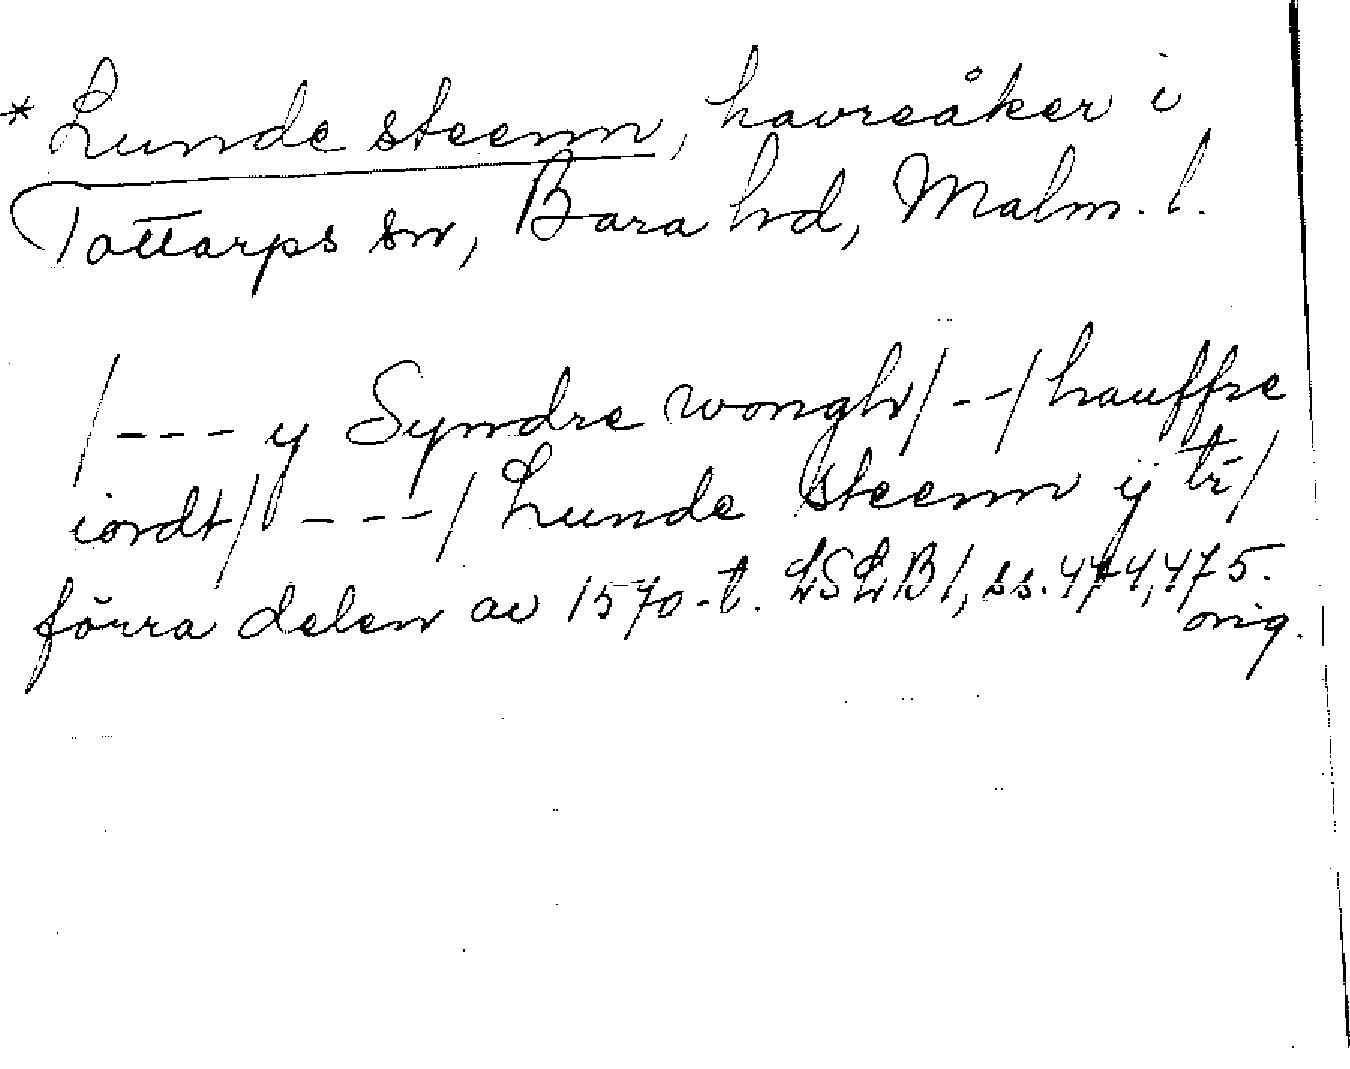 * Lunde steenn, havreåker i
Tottarps sn, Bara hd, Malm. l.
/--- y Syndre wongh/--/hauffre
iordt/ ---/ Lunde steenn ij tr/
förra delen av 1570-t. LSLB 1, ss. 474, 475.
orig.